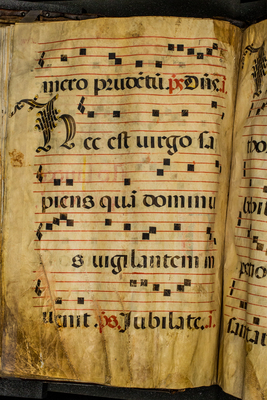 mero prudētū. p̄s Dn̄e. ī.
Hec est virgo sa
piens quā dominu
s vigilantem in
uenit. p̄s Jubilate. ī.